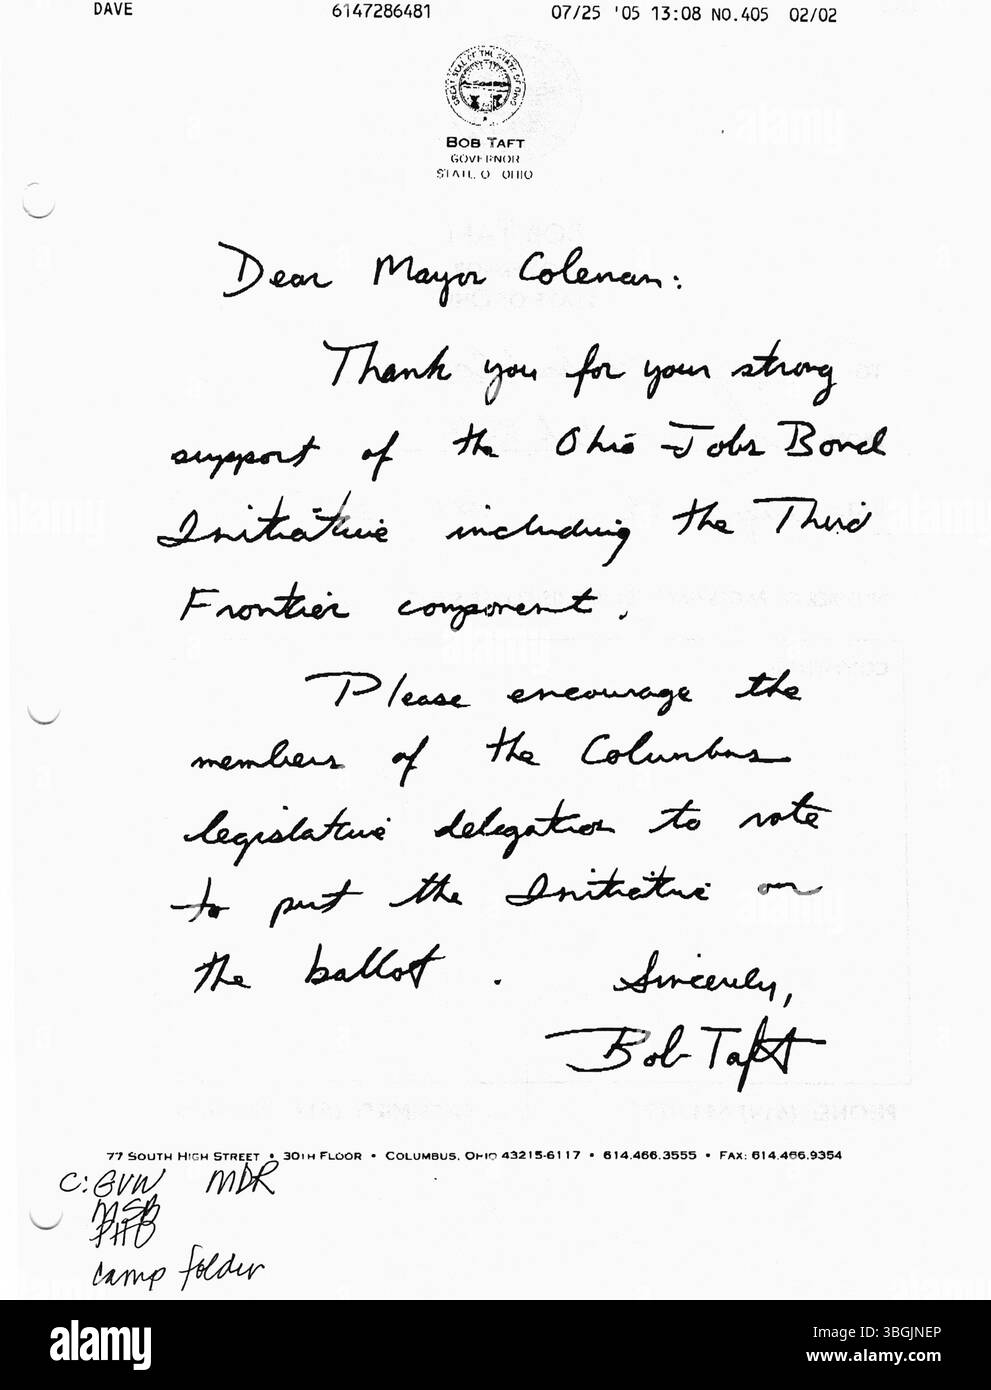 DAVE 6147286481 07/25 '05 13:08 NO.405 02/02
GREAT SEAL OF THE STATE OF OHIO
BOB TAFT
GOVERNOR
STATE O OHIO
Dear Mayor Coleman:
Thank you for your strong
support of the Ohio Jobs Bond
Initiative including the Third
Frontier component.
Please encourage the
members of the Columbus
legislative delegation to vote
to put the Initiative on
the ballot.
Sincerely,
Bob Taft
77 SOUTH HIGH STREET • 30TH FLOOR • COLUMBUS, OHIO 43215-6117 • 614.466.3555 • FAX: 614.466.9354
C: GVW MDR
MSB
PHO
camp folder
alamy
Image ID: 3BGJNEP
www.alamy.com